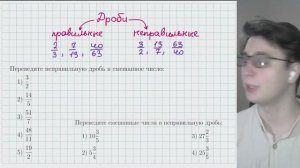 Дроби
правильные неправильные
2/3, 7/13, 40/63 3/2, 13/7, 63/40
Переведите неправильную дробь в смешанное число:
1) 3/2
2) 14/5
3)
4) 48/11
5) 19/2
Переведите смешанные числа в неправильную дробь:
1) 10 3/5 3) 27 2/3
2) 5 3/4 4) 25 3/5